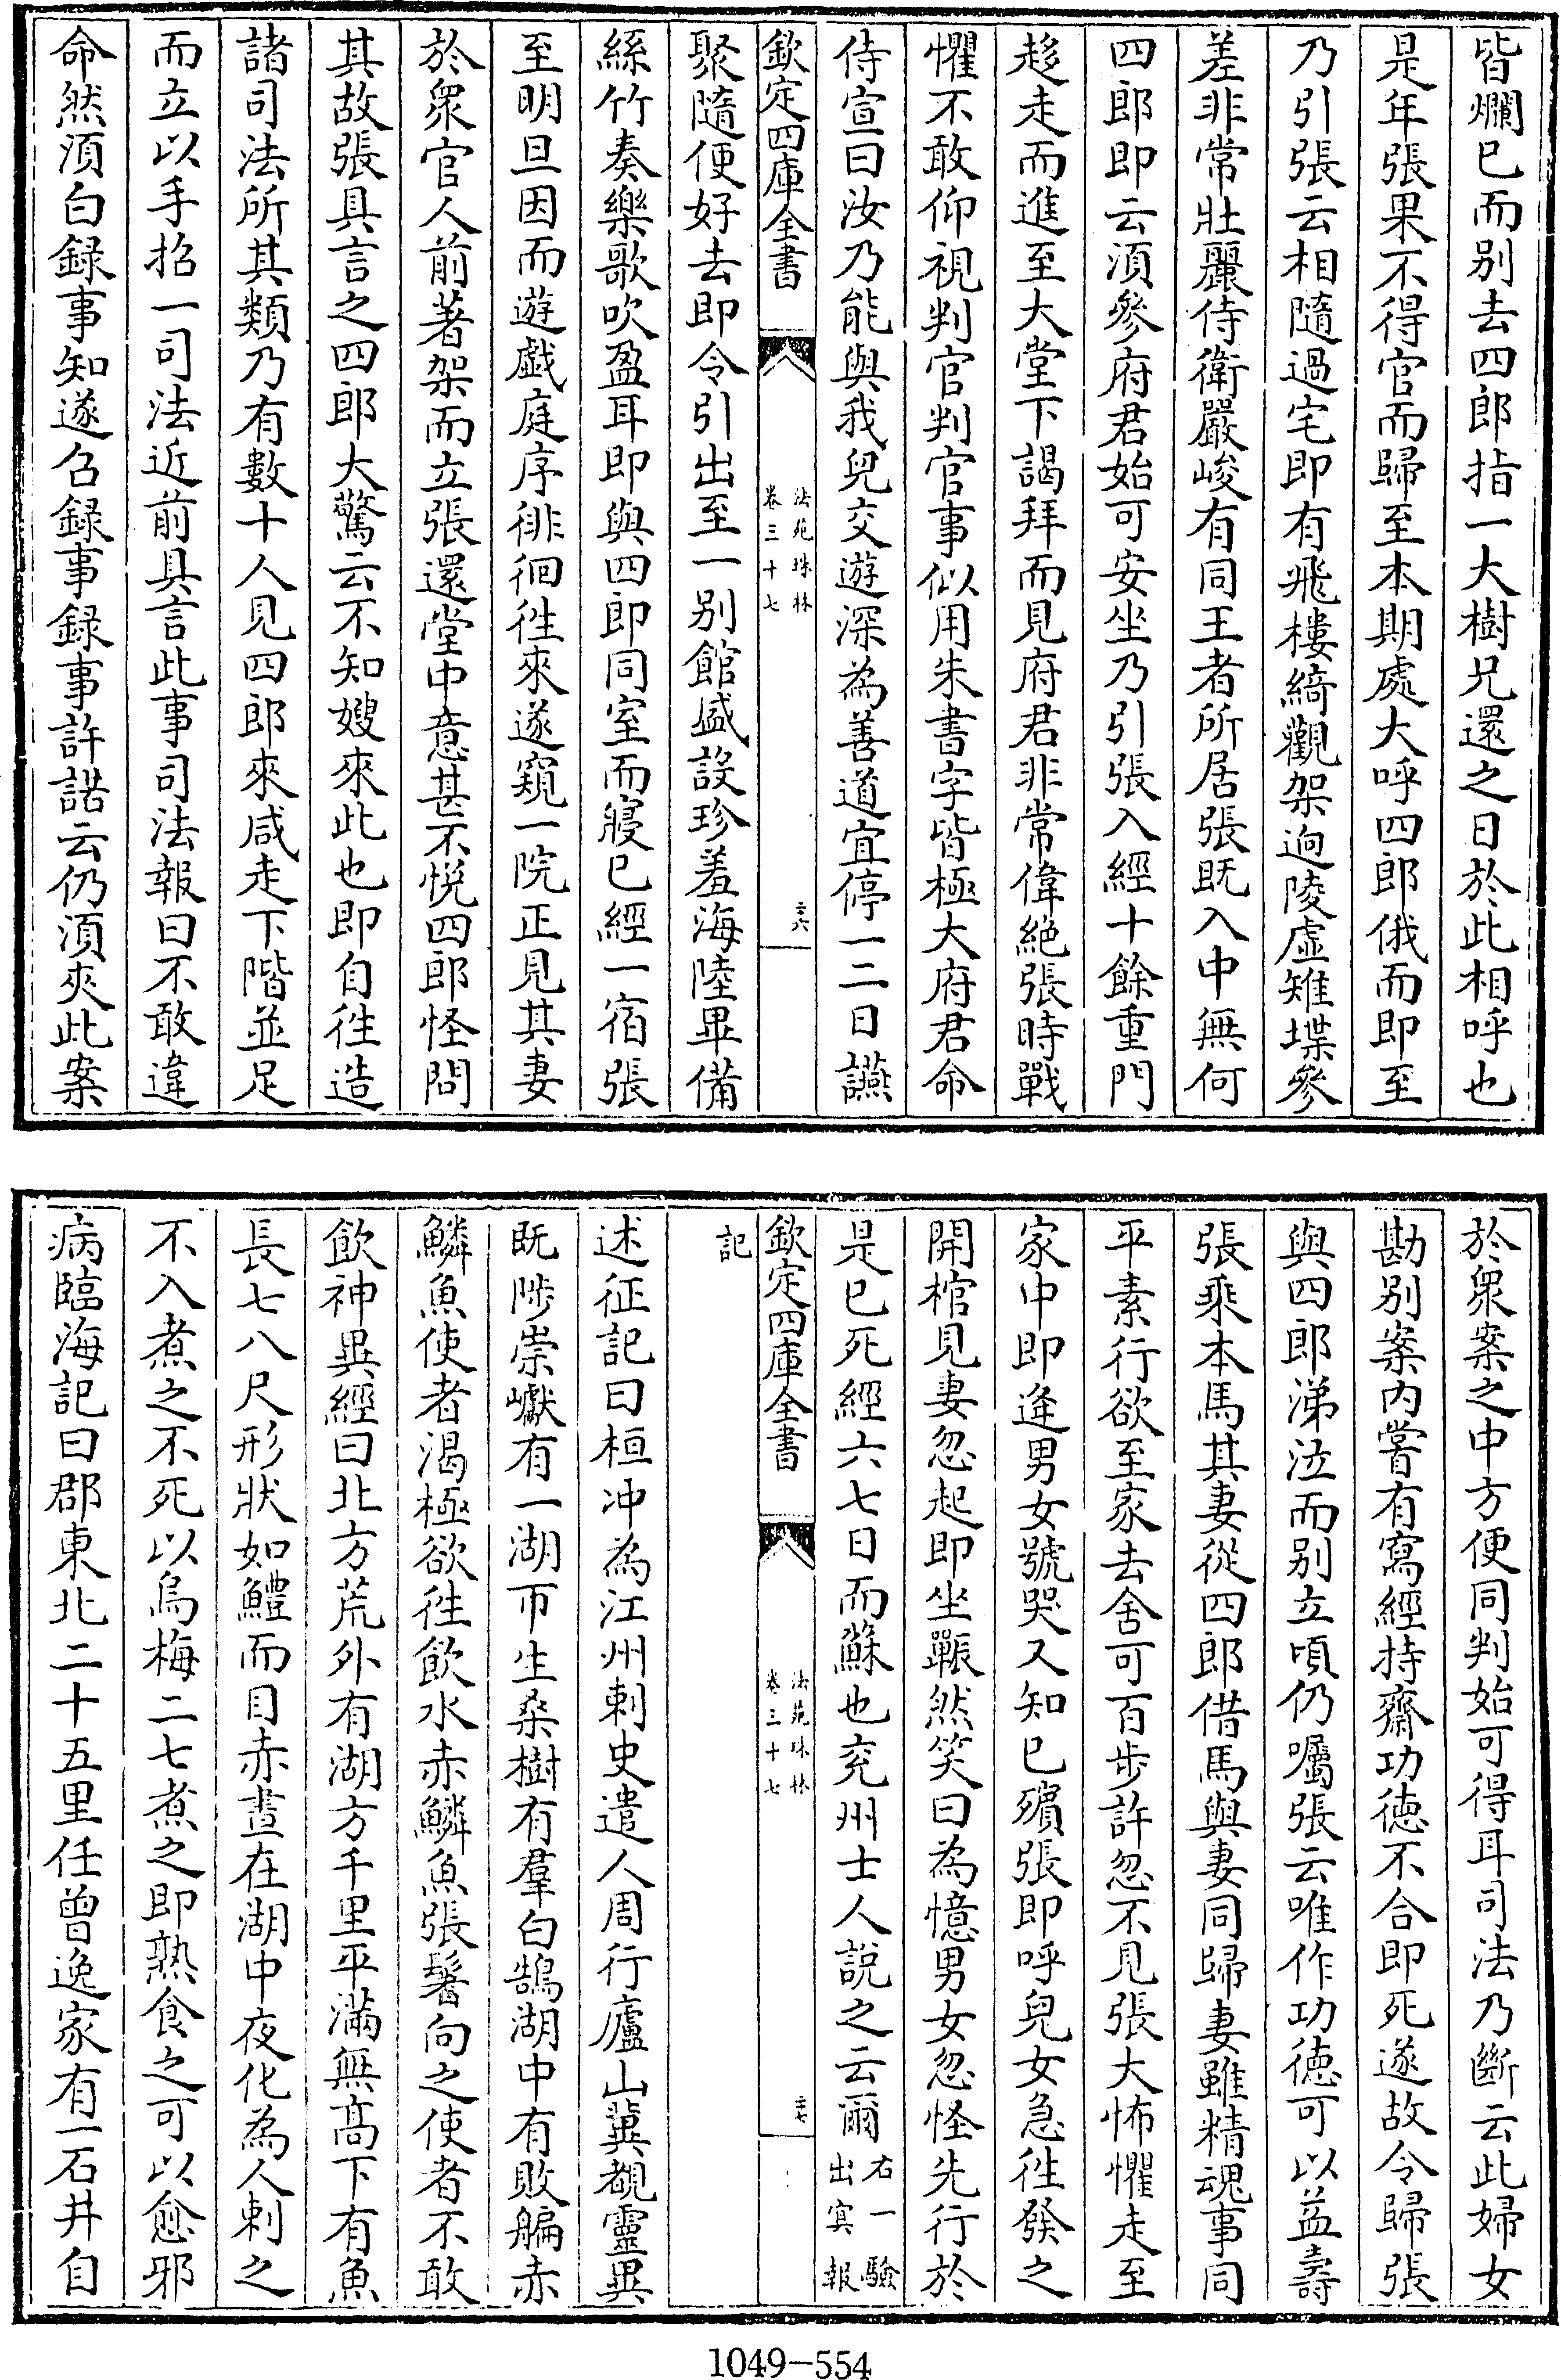 皆爛已而别去四郎指一大樹兄還之日於此相呼也
是年張果不得官而歸至本期處大呼四郎俄而即至
乃引張云相隨過宅即有飛樓綺觀架逈陵虚雉堞參
差非常壯麗侍衛嚴峻有同王者所居張既入中無何
四郎即云須參府君始可安坐乃引張入經十餘重門
趍走而進至大堂下謁拜而見府君非常偉絶張時戰
懼不敢仰視判官判官事似用朱書字皆極大府君命
侍宣曰汝乃能與我兒交遊深為善道宜停一二日讌
欽定四庫全書
法苑珠林
卷三十七
二十六
聚隨便好去即令引出至一别館盛設珍羞海陸畢備
絲竹奏樂歌吹盈耳即與四郎同室而寢已經一宿張
至明旦因而遊戲庭序徘徊徃來遂窺一院正見其妻
於衆官人前著架而立張還堂中意甚不悦四郎怪問
其故張具言之四郎大驚云不知嫂來此也即自徃造
諸司法所其類乃有數十人見四郎來咸走下階並足
而立以手招一司法近前具言此事司法報曰不敢違
命然須白録事知遂召録事録事許諾云仍須夾此案
於衆案之中方便同判始可得耳司法乃斷云此婦女
勘别案内嘗有寫經持齋功徳不合即死遂故令歸張
與四郎涕泣而别立頃仍囑張云唯作功徳可以益壽
張乘本馬其妻從四郎借馬與妻同歸妻雖精魂事同
平素行欲至家去舍可百歩許忽不見張大怖懼走至
家中即逢男女號哭又知已殯張即呼兒女急徃發之
開棺見妻忽起即坐冁然笑曰為憶男女忽怪先行於
是已死經六七日而蘇也兖州士人說之云爾右一驗出冥報
欽定四庫全書
法苑珠林
卷三十七
二十七
記
述征記曰桓冲為江州刺史遣人周行廬山冀覩靈異
既陟崇巘有一湖帀生桑樹有羣白鵠湖中有敗艑赤
鱗魚使者渴極欲徃飲水赤鱗魚張鬐向之使者不敢
飲神異經曰北方荒外有湖方千里平滿無髙下有魚
長七八尺形狀如鱧而目赤晝在湖中夜化為人刺之
不入煮之不死以烏梅二七煮之即熟食之可以愈邪
病臨海記曰郡東北二十五里任曾逸家有一石井自
1049-554